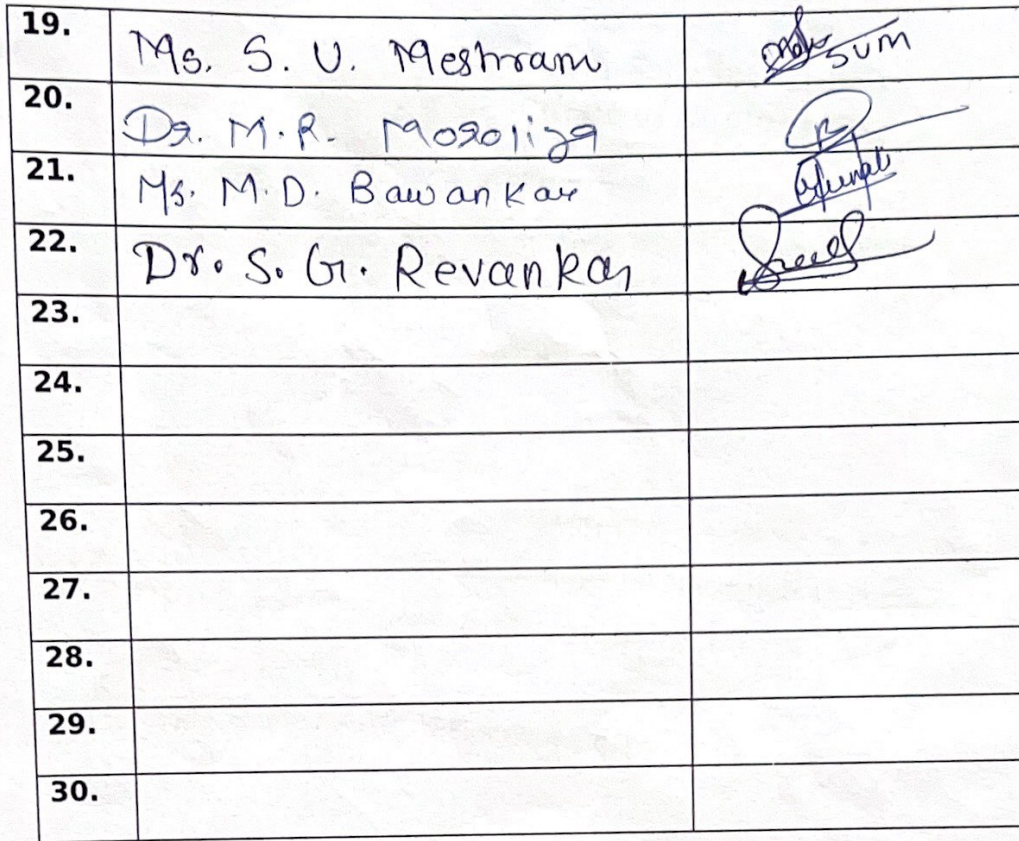 19. Ms. S. U. Meshram SUM
20. Dr. M. R.
21. Ms. M. D. Bawankar
22. Dr. S. G. Revankar
23.
24.
25.
26.
27.
28.
29.
30.